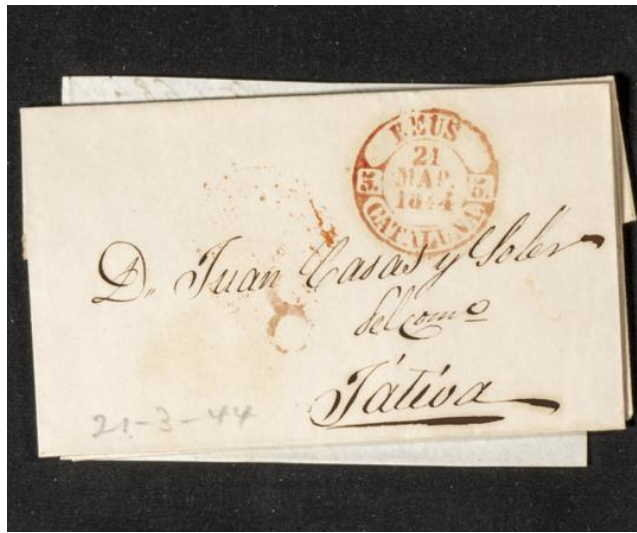 REUS
21
MAR.
1844
5. 5.
CATALUÑA
D. Juan Casas y Soler
del com.o
Játiva
21-3-44